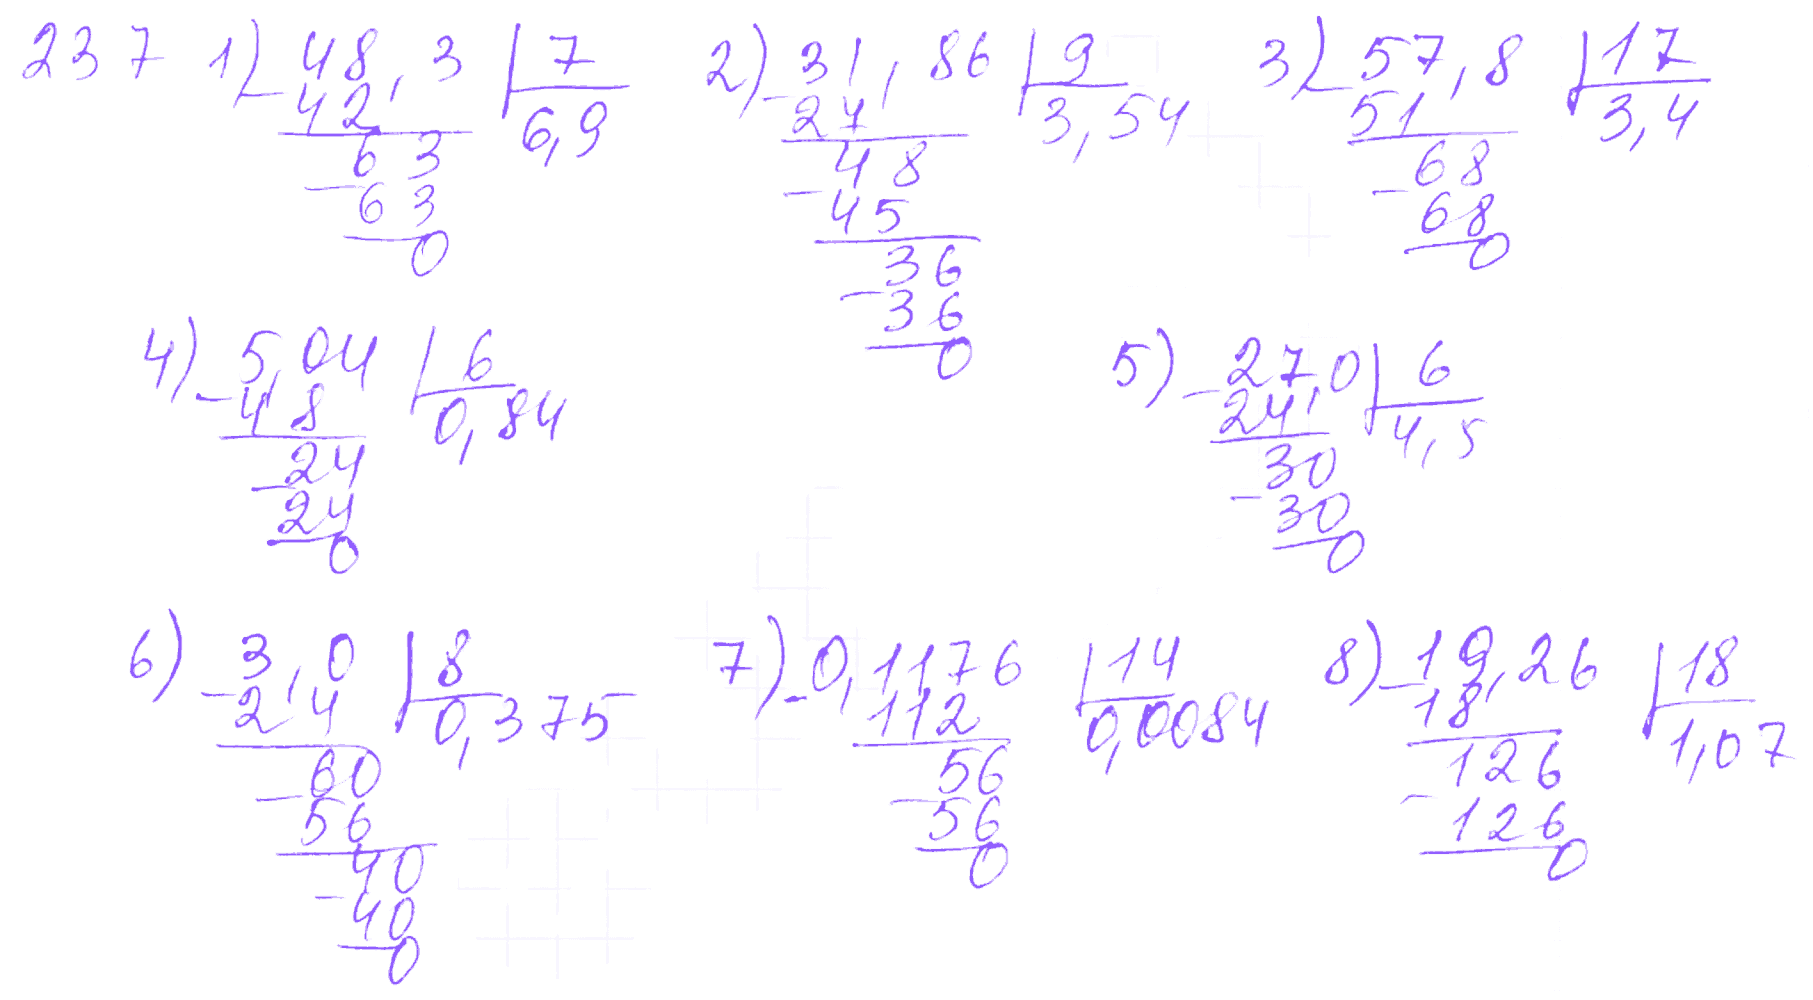 237 1) 48,3 | 7 2) 31,86 | 9 3) 57,8 | 17
- 42 6,9 - 27 3,54 - 51 3,4
63 48 68
- 63 - 45 - 68
0 36 0
- 36
0
4) 5,04 | 6 5) 27,0 | 6
- 48 0,84 - 24 4,5
24 30
- 24 - 30
0 0
6) 3,0 | 8 7) 0,1176 | 14 8) 19,26 | 18
- 24 0,375 - 112 0,0084 - 18 1,07
60 56 126
- 56 - 56 - 126
40 0 0
- 40
0